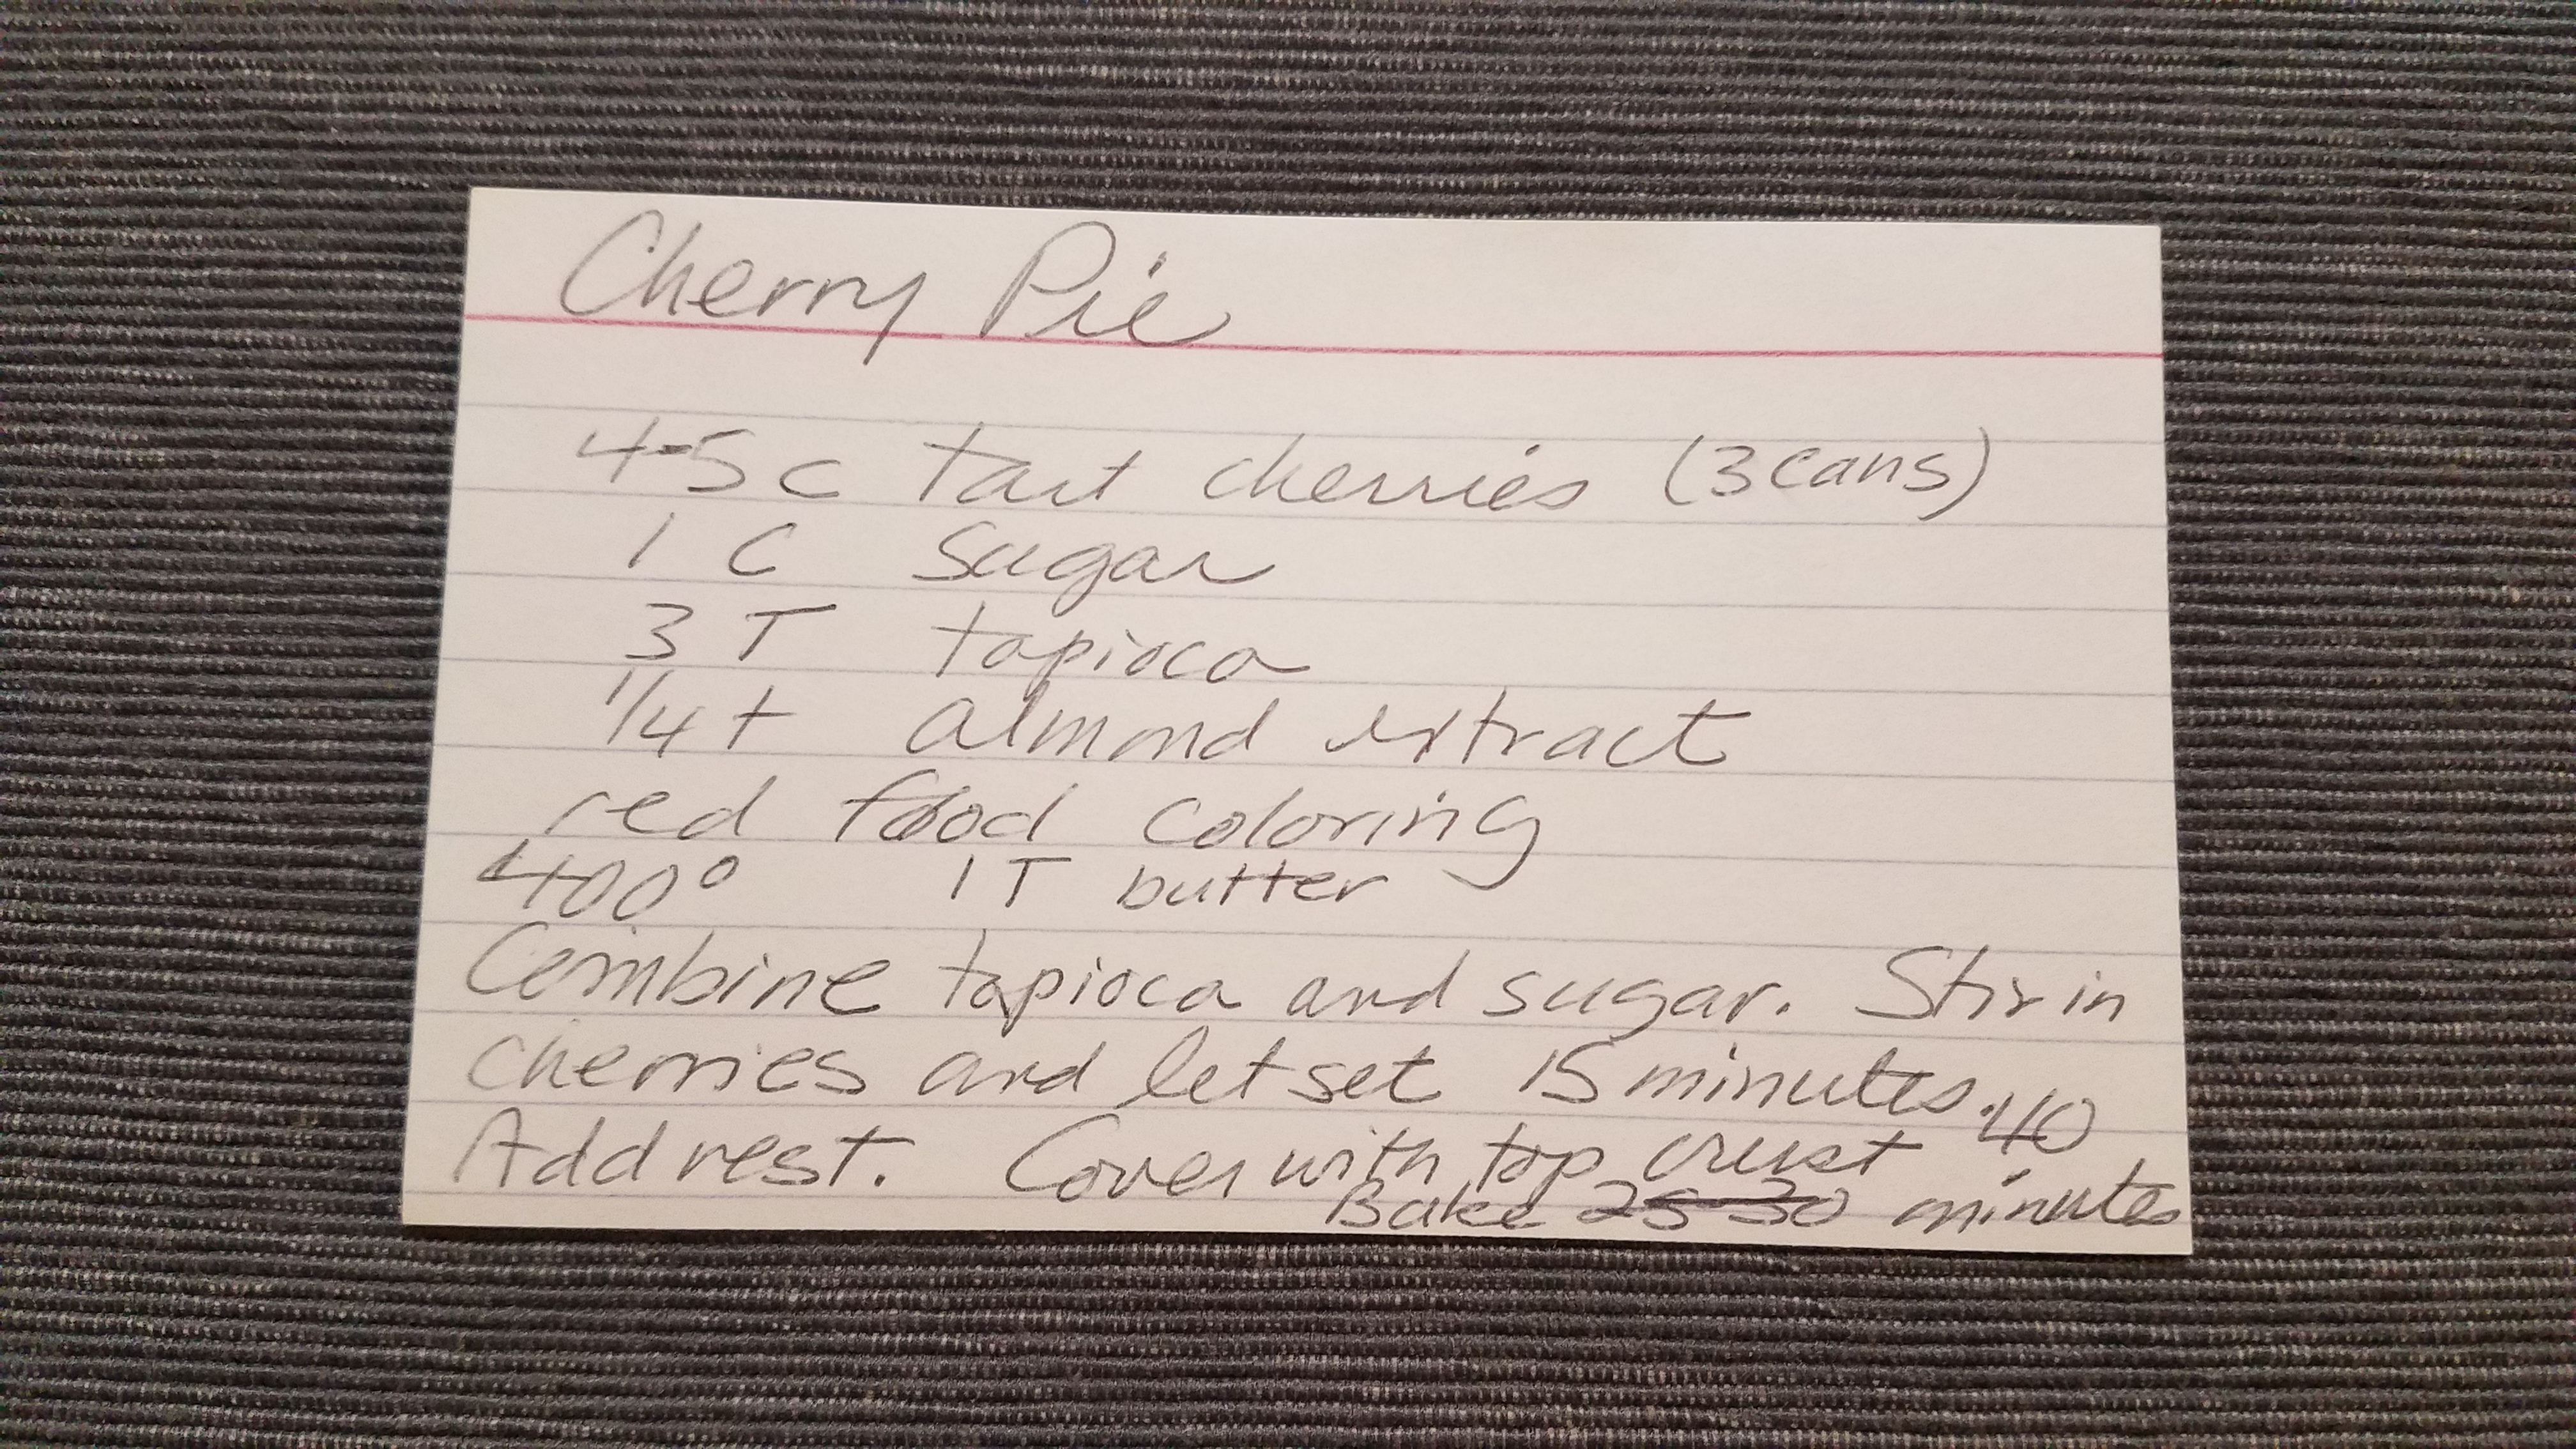 Cherry Pie
4-5 c tart cherries (3 cans)
1 C sugar
3 T tapioca
1/4 t almond extract
red food coloring
400° 1 T butter
Combine tapioca and sugar. Stir in
cherries and let set 15 minutes.
Add rest. Cover with top crust 40
Bake 25-30 minutes